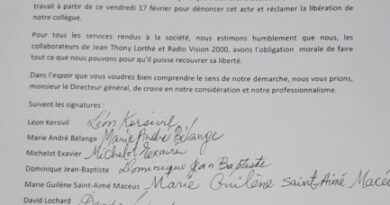 travail à partir de ce vendredi 17 février pour dénoncer cet acte et réclamer la libération de
notre collègue.
Pour tous les services rendus à la société, nous estimons humblement que nous, les
collaborateurs de Jean Thony Lorthé et Radio Vision 2000, avons l'obligation morale de faire
tout ce que nous pouvons pour qu'il puisse recouvrer sa liberté.
Dans l'espoir que vous voudrez bien comprendre le sens de notre démarche, nous vous prions,
monsieur le Directeur général, de croire en notre considération et notre professionalisme.
Suivent les signatures :
Léon Kersivil Léon Kersivil
Marie André Bélange Marie André Bélange
Michelot Exavier Michelot Exavier
Dominique Jean-Baptiste Dominique Jean Baptiste
Marie Guilène Saint-Aimé Macéus Marie Guilène Saint-Aimé Macé
David Lochard